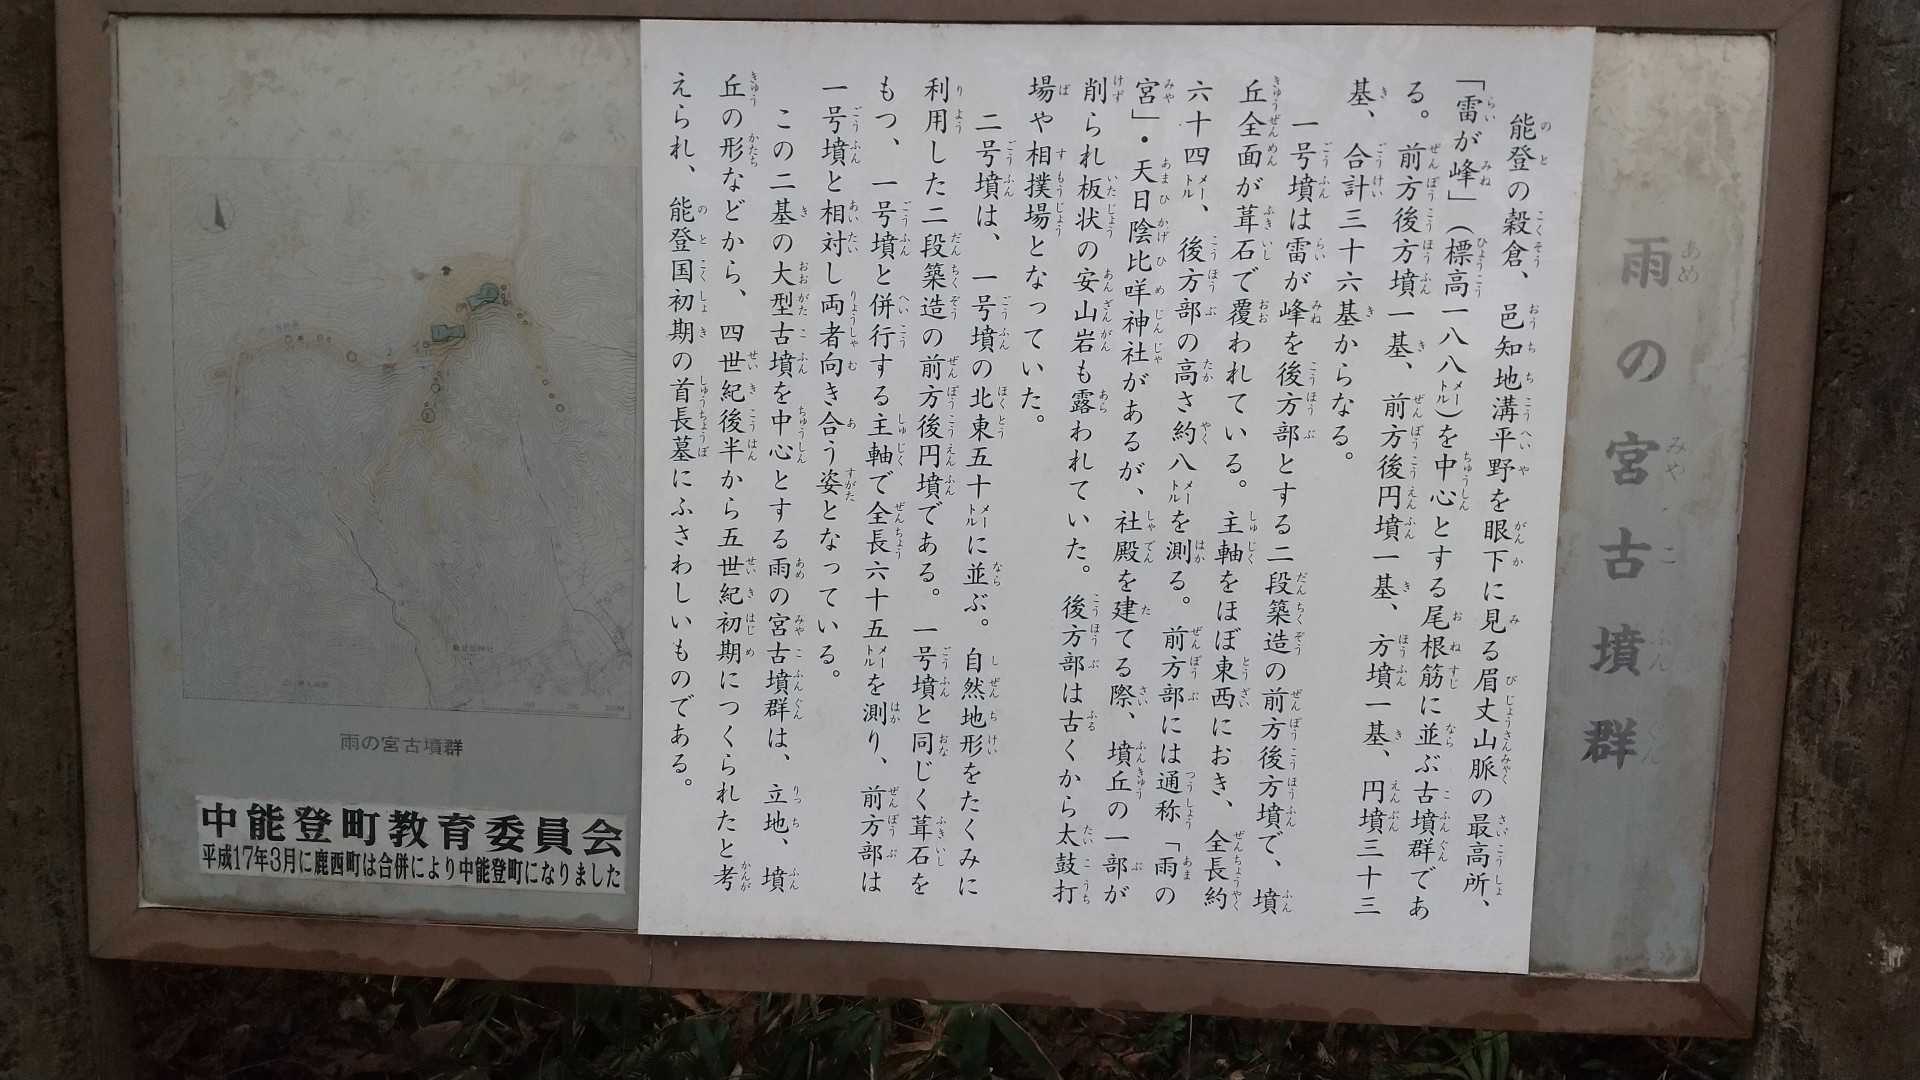 雨の宮古墳群
能登の穀倉、邑知地溝平野を眼下に見る眉丈山脈の最高所、
「雷が峰」（標高一八八メートル）を中心とする尾根筋に並ぶ古墳群であ
る。前方後方墳一基、前方後円墳一基、方墳一基、円墳三十三
基、合計三十六基からなる。
一号墳は雷が峰を後方部とする二段築造の前方後方墳で、墳
丘全面が葺石で覆われている。主軸をほぼ東西におき、全長約
六十四メートル、後方部の高さ約八メートルを測る。前方部には通称「雨の
宮」・天日陰比咩神社があるが、社殿を建てる際、墳丘の一部が
削られ板状の安山岩も露われていた。後方部は古くから太鼓打
場や相撲場となっていた。
二号墳は、一号墳の北東五十メートルに並ぶ。自然地形をたくみに
利用した二段築造の前方後円墳である。一号墳と同じく葺石を
もつ、一号墳と併行する主軸で全長六十五メートルを測り、前方部は
一号墳と相対し両者向き合う姿となっている。
この二基の大型古墳を中心とする雨の宮古墳群は、立地、墳
丘の形などから、四世紀後半から五世紀初期につくられたと考
えられ、能登国初期の首長墓にふさわしいものである。
雨の宮古墳群
中能登町教育委員会
平成17年3月に鹿西町は合併により中能登町になりました